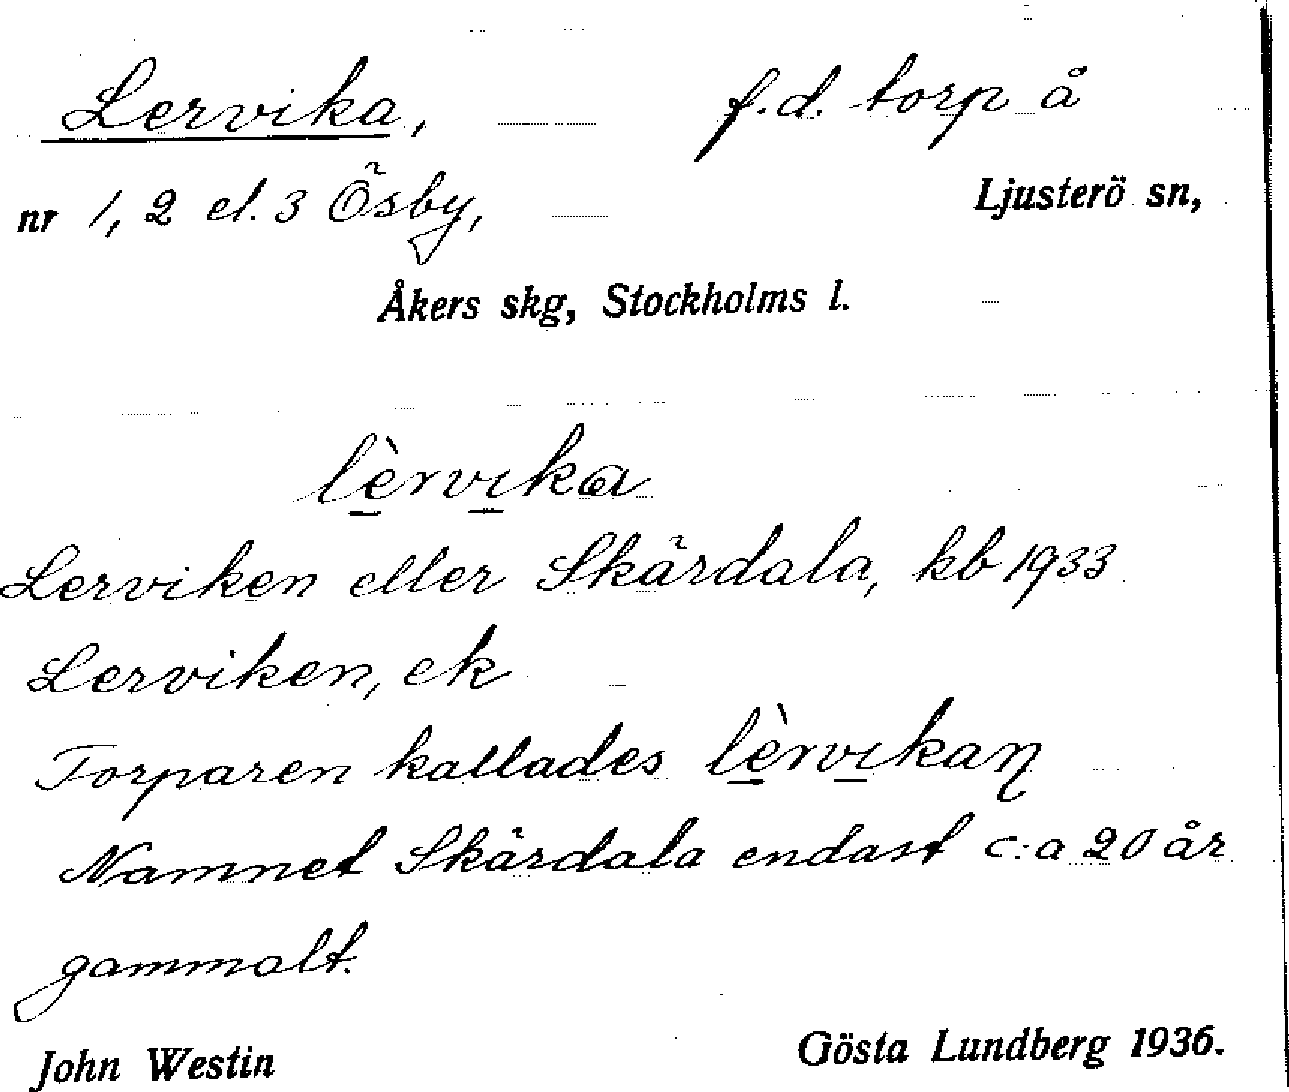 Lervika, f.d. torp å
nr 1, 2 el. 3 Ösby, Ljusterö sn,
Åkers skg, Stockholms l.
lèrvika
Lerviken eller Skärdala, kb 1933
Lerviken, ek
Torparen kallades lèrvikaŋ
Namnet Skärdala endast c:a 20 år
gammalt.
John Westin Gösta Lundberg 1936.